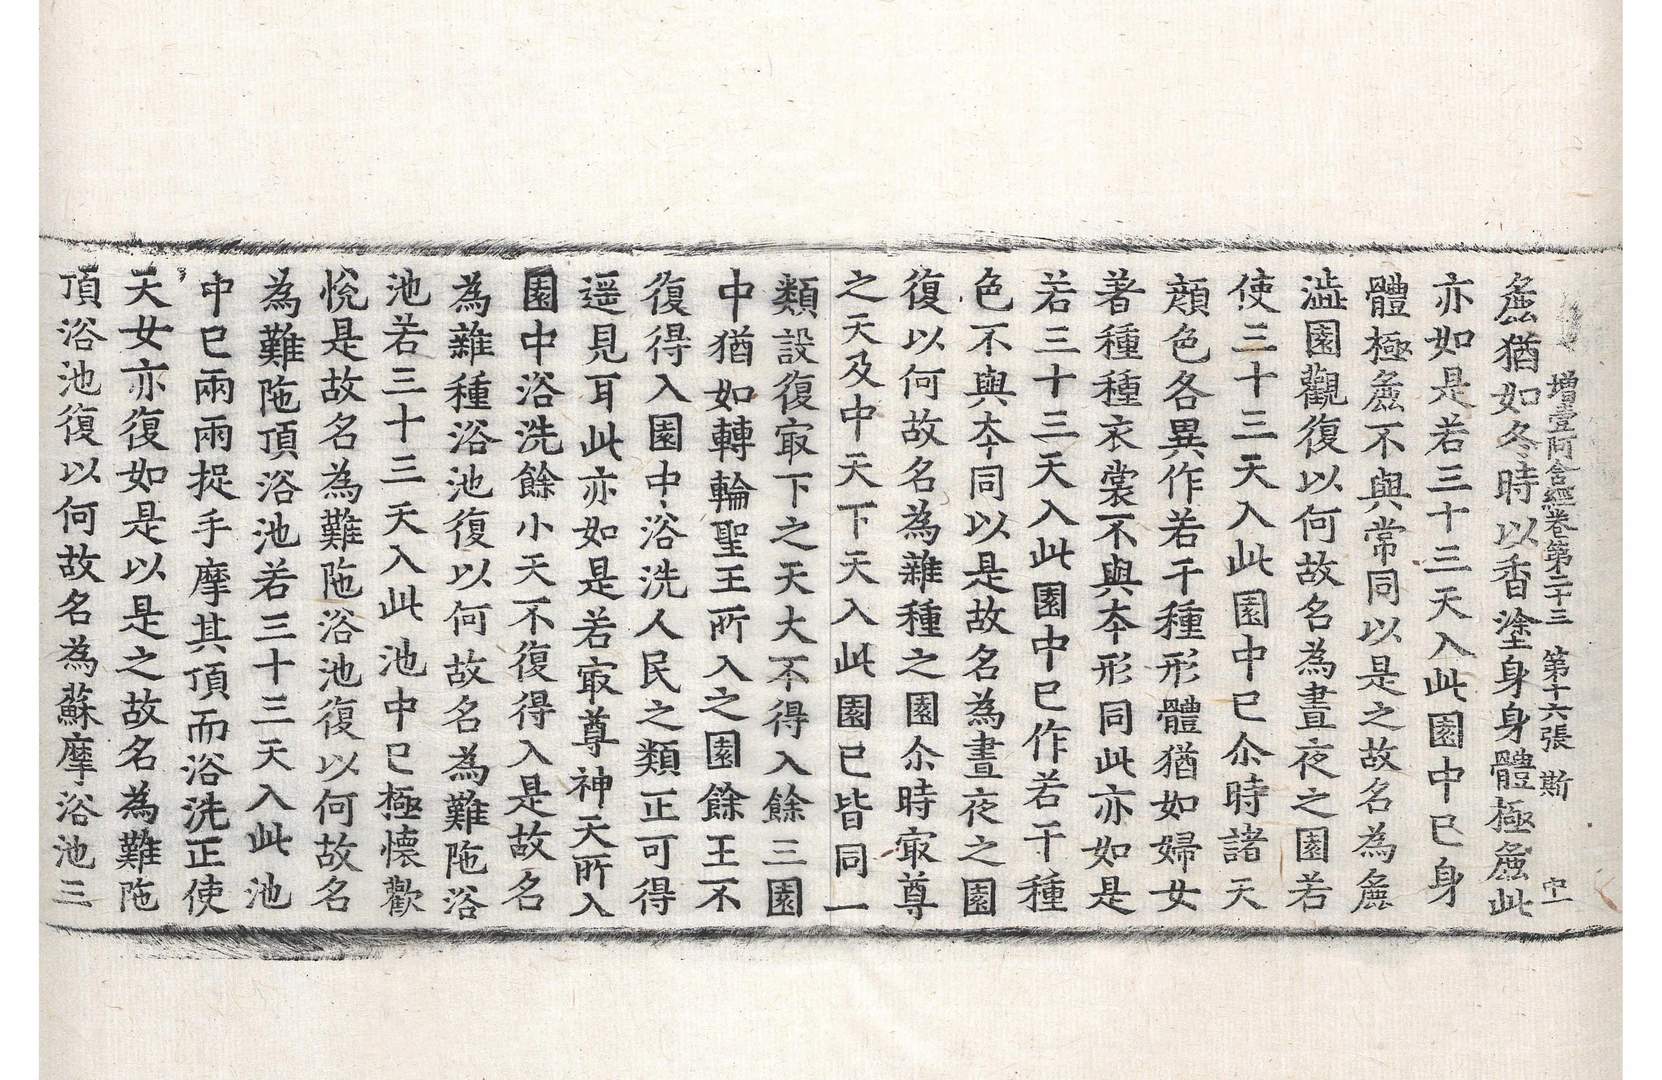 增壹阿含經卷第二十三　第十六張　斯
麁猶如冬時以香塗身身體極麁此
亦如是若三十三天入此園中已身
體極麁不與常同以是之故名為麁
澁園觀復以何故名為晝夜之園若
使三十三天入此園中已尒時諸天
顔色各異作若干種形體猶如婦女
著種種衣裳不與夲形同此亦如是
若三十三天入此園中已作若干種
色不與夲同以是故名為晝夜之園
復以何故名為雜種之園尒時㝡尊
之天及中天下天入此園已皆同一
類設復㝡下之天大不得入餘三園
中猶如轉輪聖王所入之園餘王不
復得入園中浴洗人民之類正可得
遥見耳此亦如是若㝡尊神天所入
園中浴洗餘小天不復得入是故名
為雜種浴池復以何故名為難陁浴
池若三十三天入此池中已極懷歡
悅是故名為難陁浴池復以何故名
為難陁頂浴池若三十三天入此池
中已兩兩捉手摩其頂而浴洗正使
天女亦復如是以是之故名為難陁
頂浴池復以何故名為蘇摩浴池三